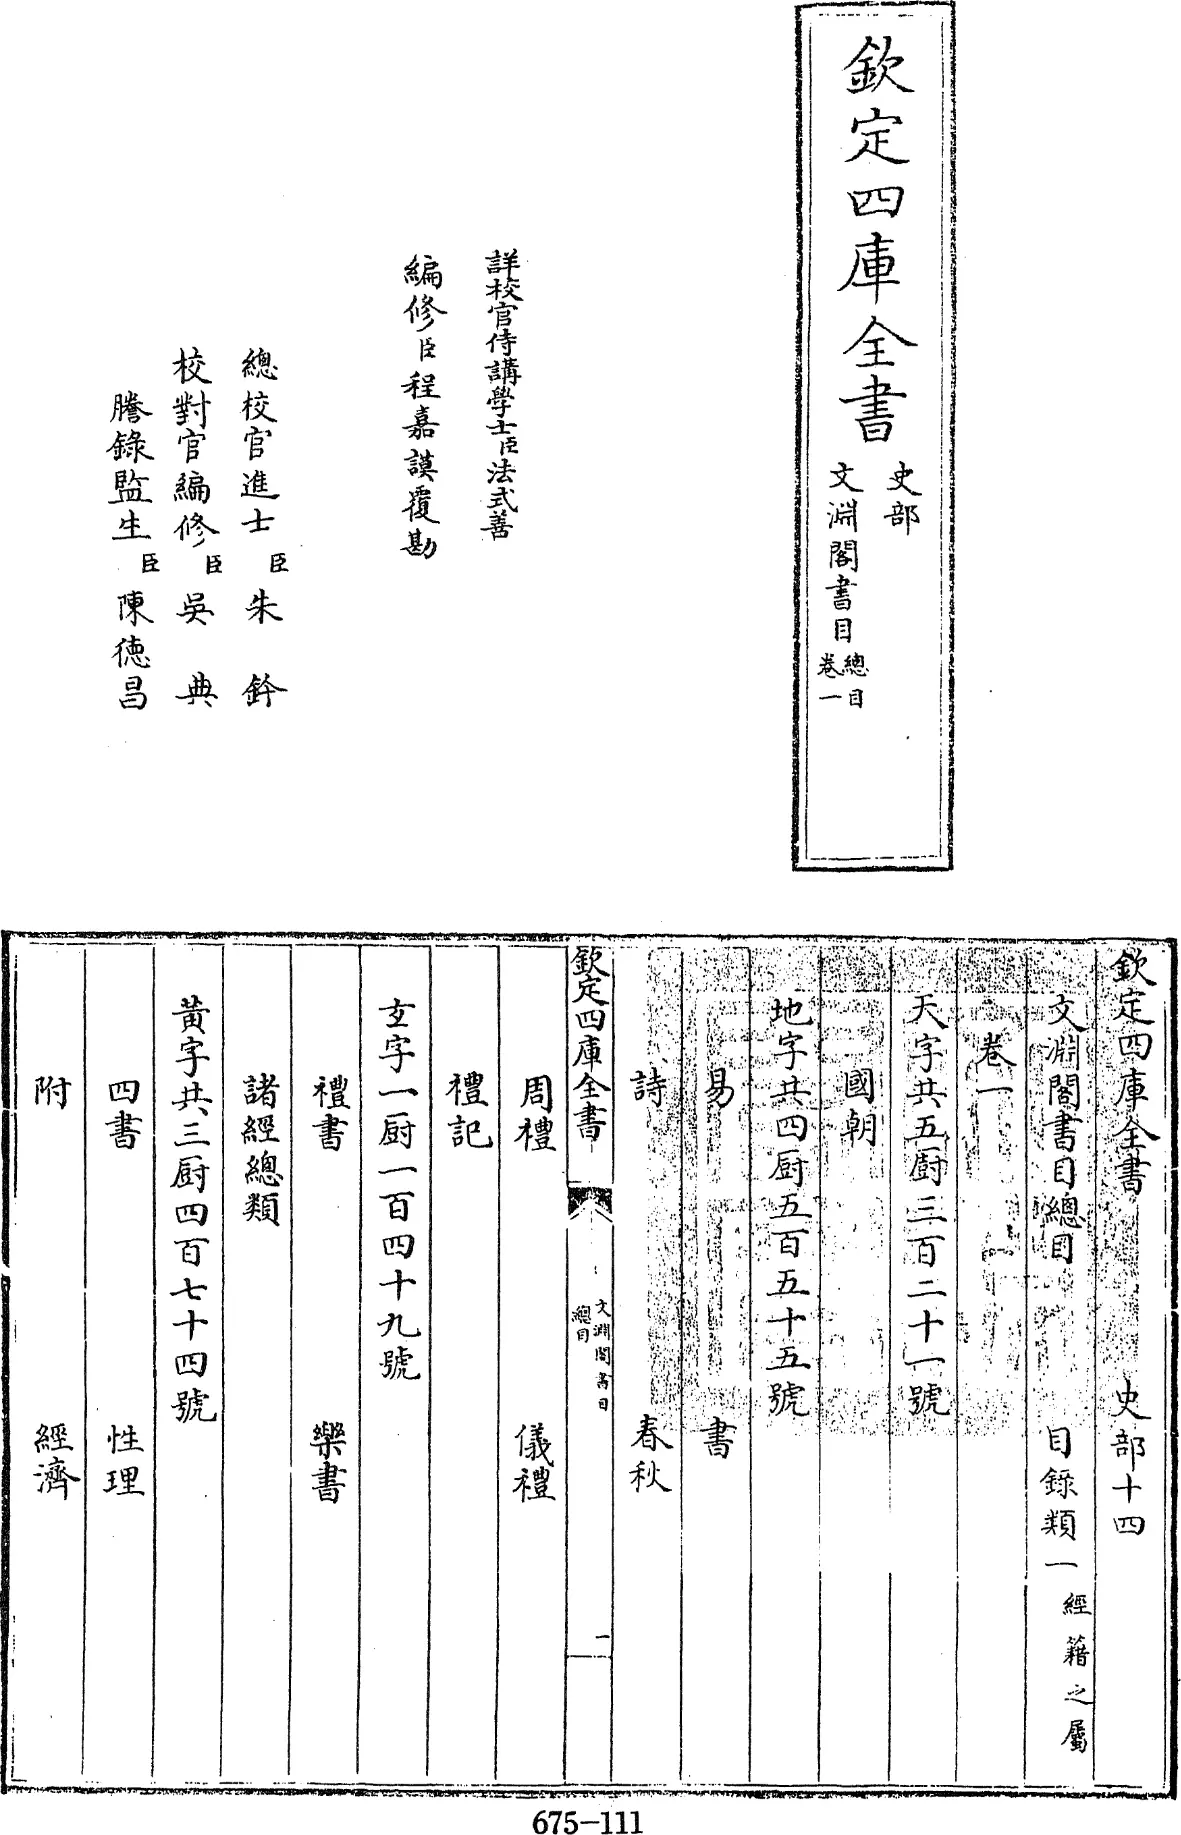 欽定四庫全書
史部
文淵閣書目
總目
卷一
詳校官侍講學士臣法式善
編修臣程嘉謨覆勘
總校官進士臣朱鈐
校對官編修臣吳典
謄錄監生臣陳德昌
欽定四庫全書 史部十四
文淵閣書目總目 目錄類一 經籍之屬
卷一
天字共五厨三百二十一號
國朝
地字共四厨五百五十五號
易 書
詩 春秋
欽定四庫全書
文淵閣書目
總目
一
周禮 儀禮
禮記
玄字一厨一百四十九號
禮書 樂書
諸經總類
黃字共三厨四百七十四號
四書 性理
附 經濟
675-111